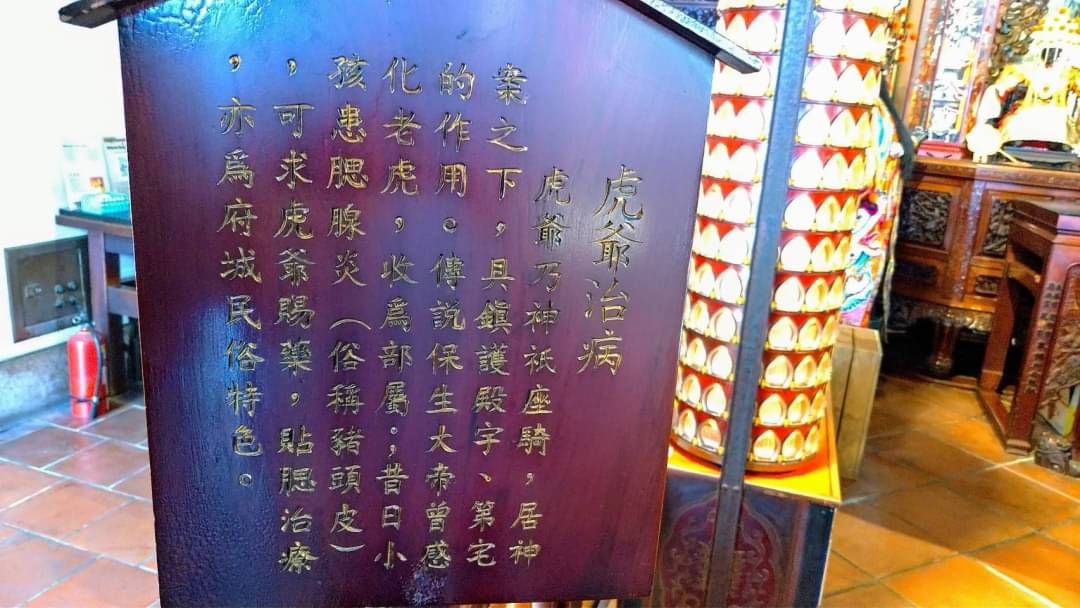 虎爺治病
虎爺乃神祇座騎，居神
案之下，具鎮護殿宇、第宅
的作用。傳說保生大帝曾感
化老虎，收為部屬；昔日小
孩患腮腺炎（俗稱豬頭皮）
，可求虎爺賜藥，貼腮治療
，亦為府城民俗特色。